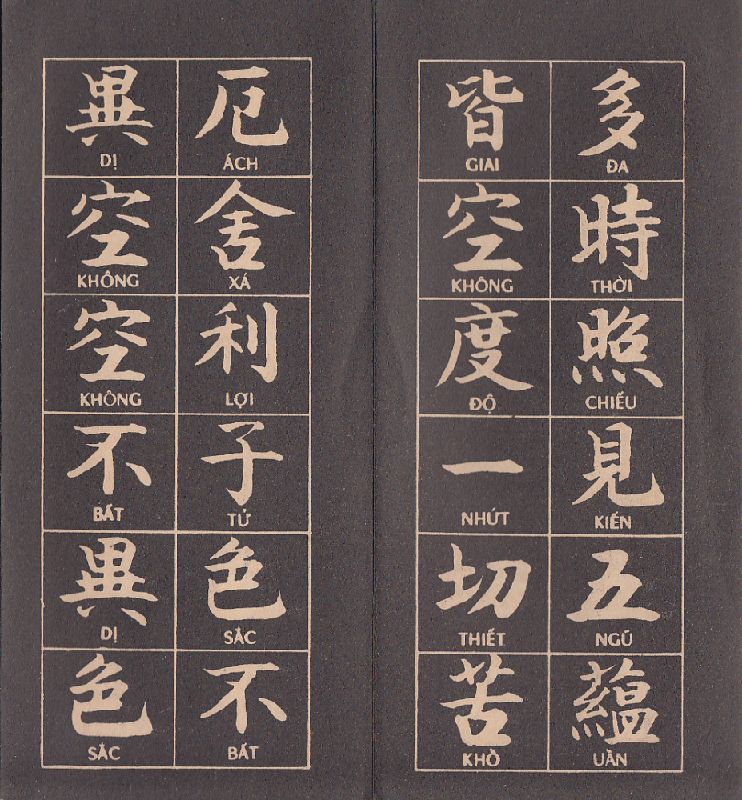 多
ĐA
時
THỜI
照
CHIẾU
見
KIẾN
五
NGŨ
蘊
UẨN
皆
GIAI
空
KHÔNG
度
ĐỘ
一
NHỨT
切
THIẾT
苦
KHỔ
厄
ÁCH
舍
XÁ
利
LỢI
子
TỬ
色
SẮC
不
BẤT
異
DỊ
空
KHÔNG
空
KHÔNG
不
BẤT
異
DỊ
色
SẮC